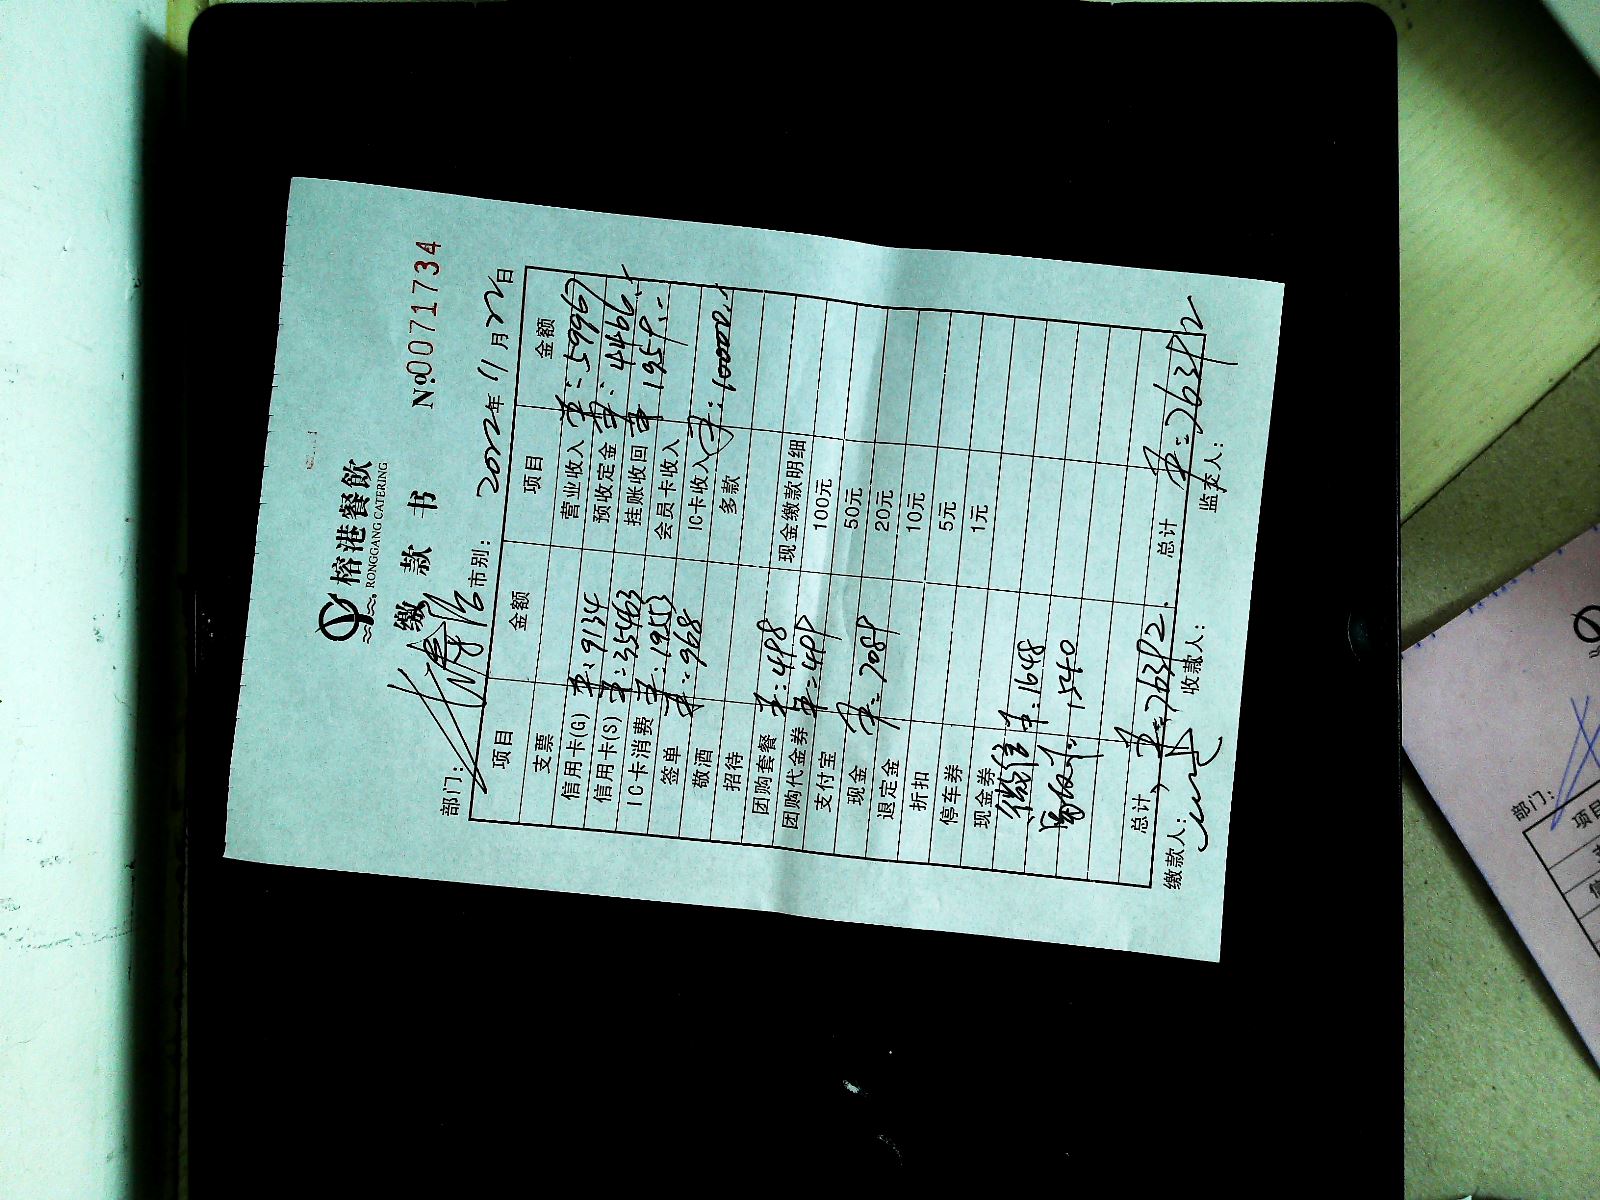 榕港餐飲
RONGGANG CATERING
缴款书
№0071734
部门: 市别: 年11月22日
项目 金额 项目 金额
支票 营业收入 ¥:59967
信用卡(G) ¥:9134 预收定金 ¥:4466
信用卡(S) ¥:35463 挂账收回 ¥1959
IC卡消费 ¥:19553 会员卡收入
签单 ¥:968 IC卡收入 ¥:10000
敬酒 多款
招待
团购套餐 ¥:498 现金缴款明细
团购代金券 ¥:499 100元
支付宝 50元
现金 ¥:7089 20元
退定金 10元
折扣 5元
停车券 1元
现金券
微信 ¥:1648
1540
总计 ¥:76392. 总计 ¥:76392
缴款人: 收款人: 监交人:
部门:
项目